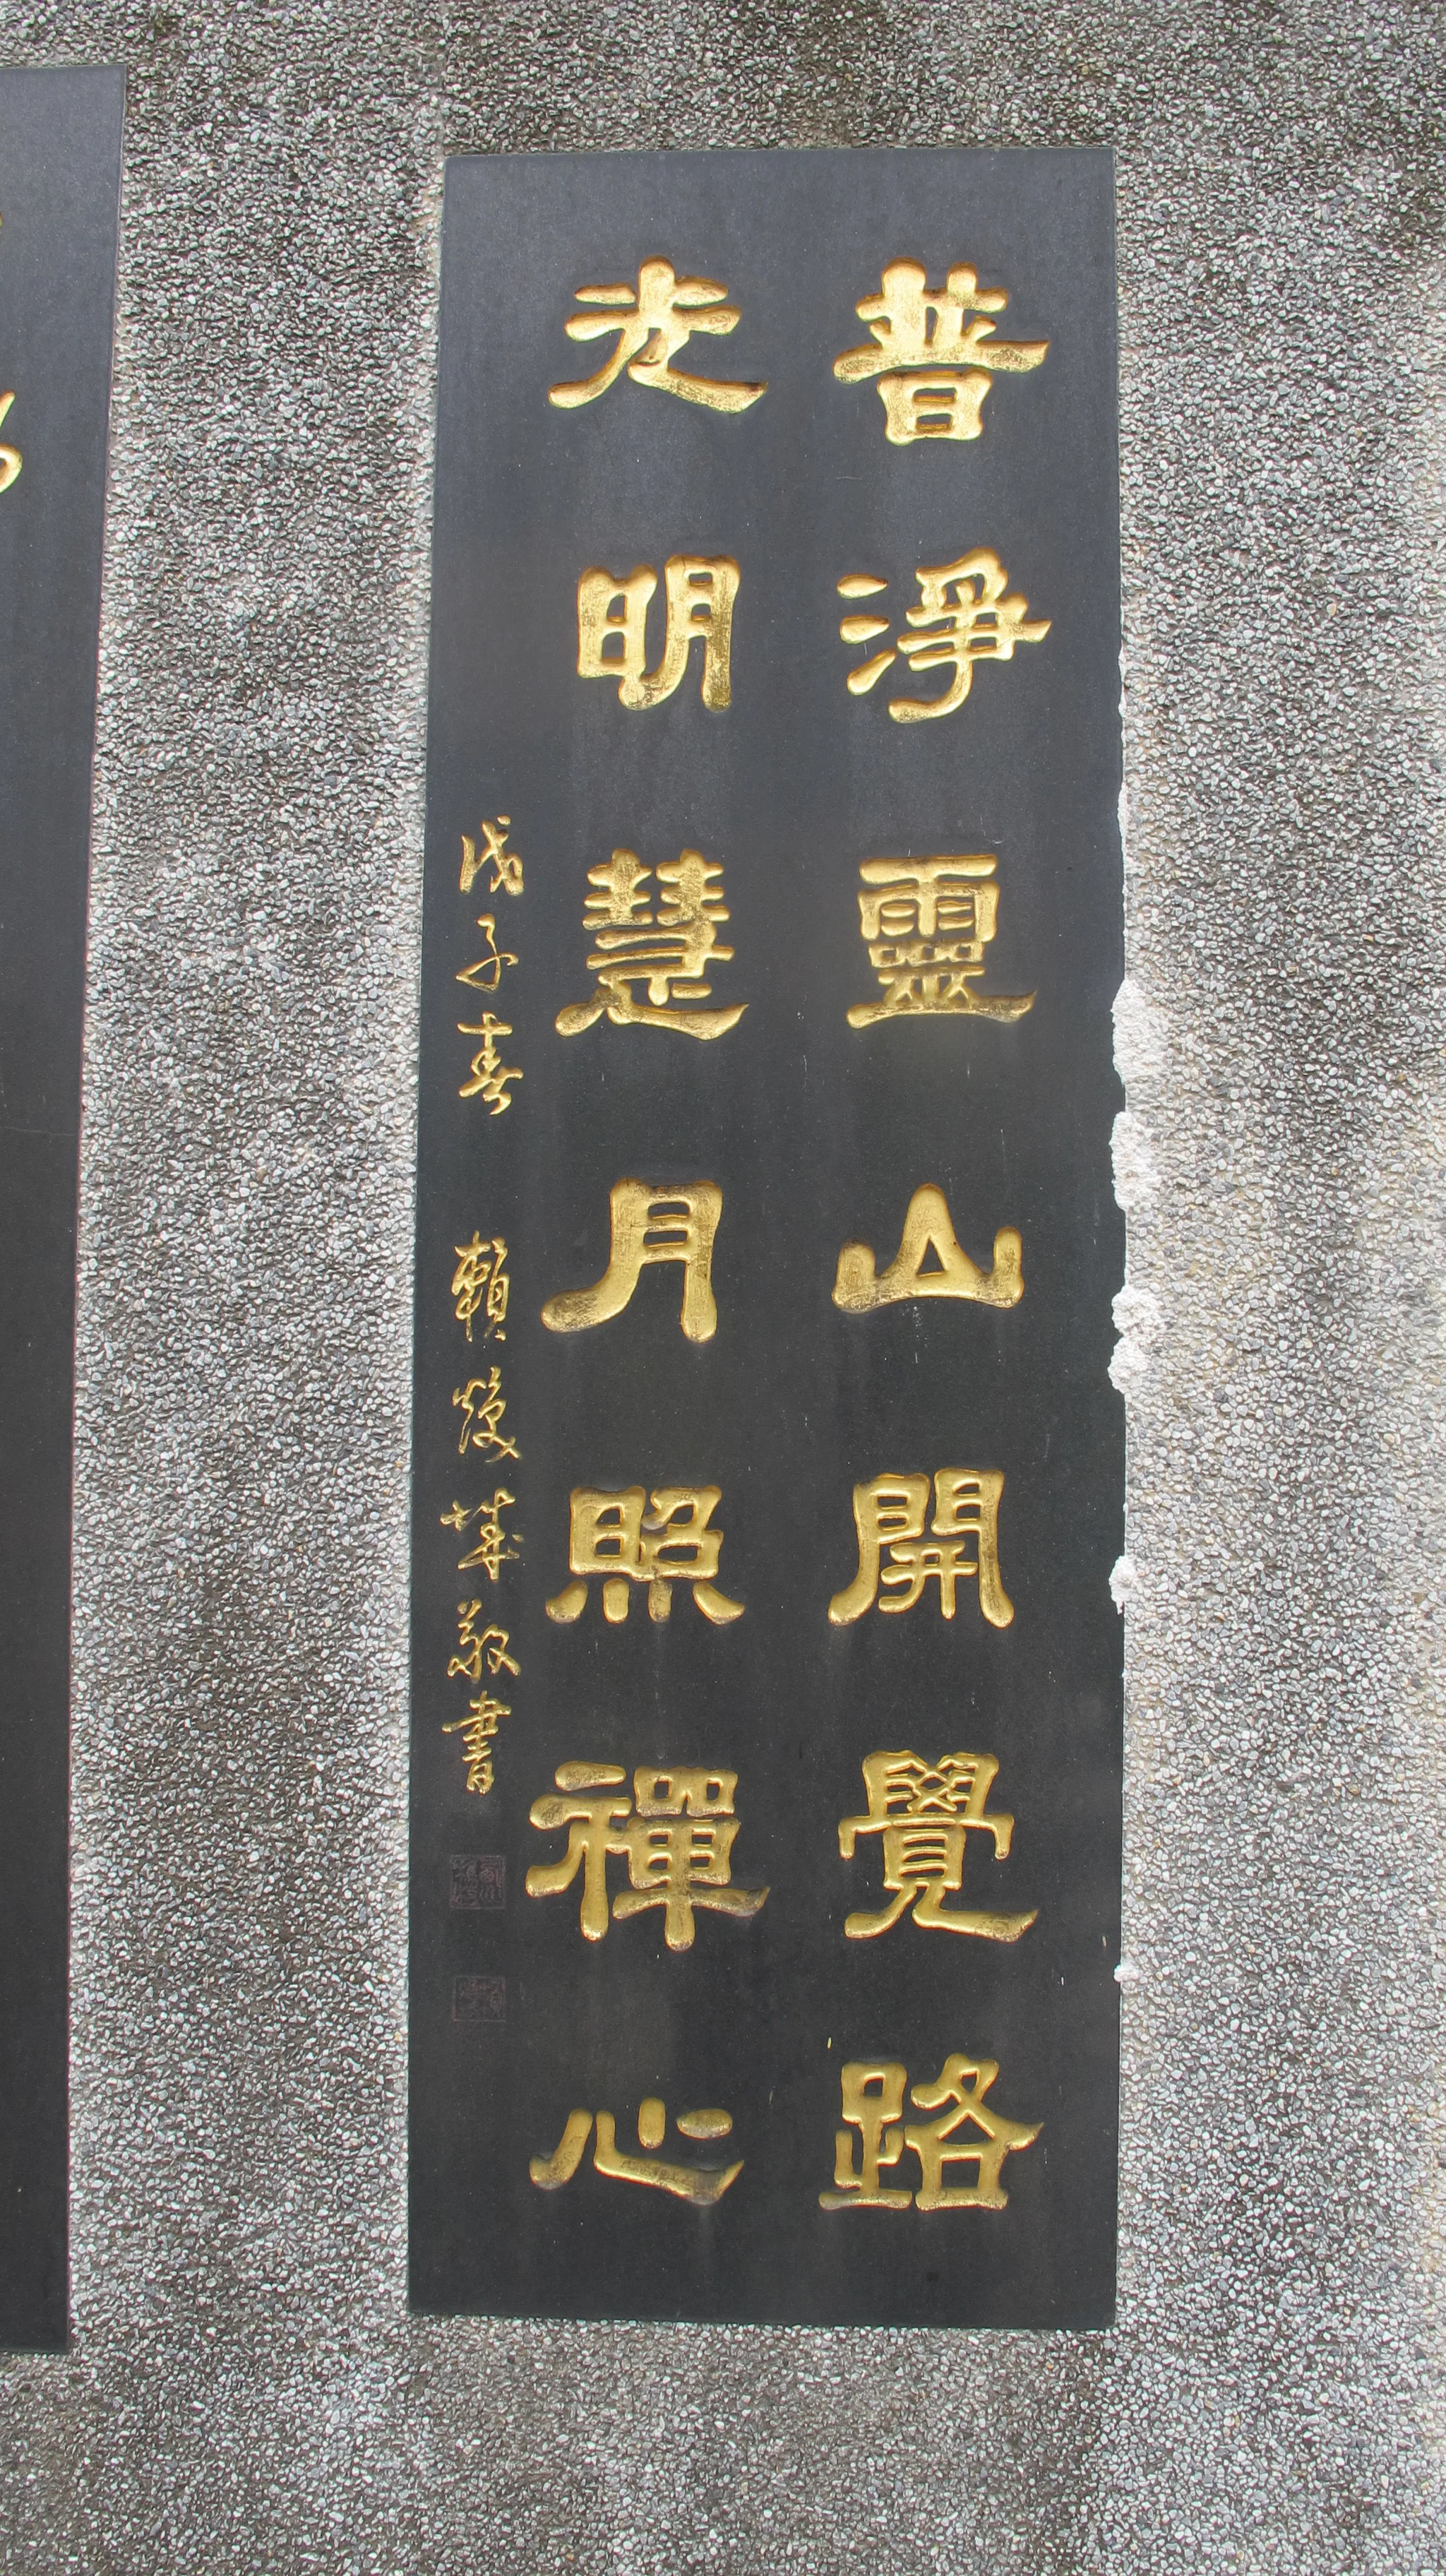 普淨靈山開覺路
光明慧月照禪心
戊子春 賴煥城敬書